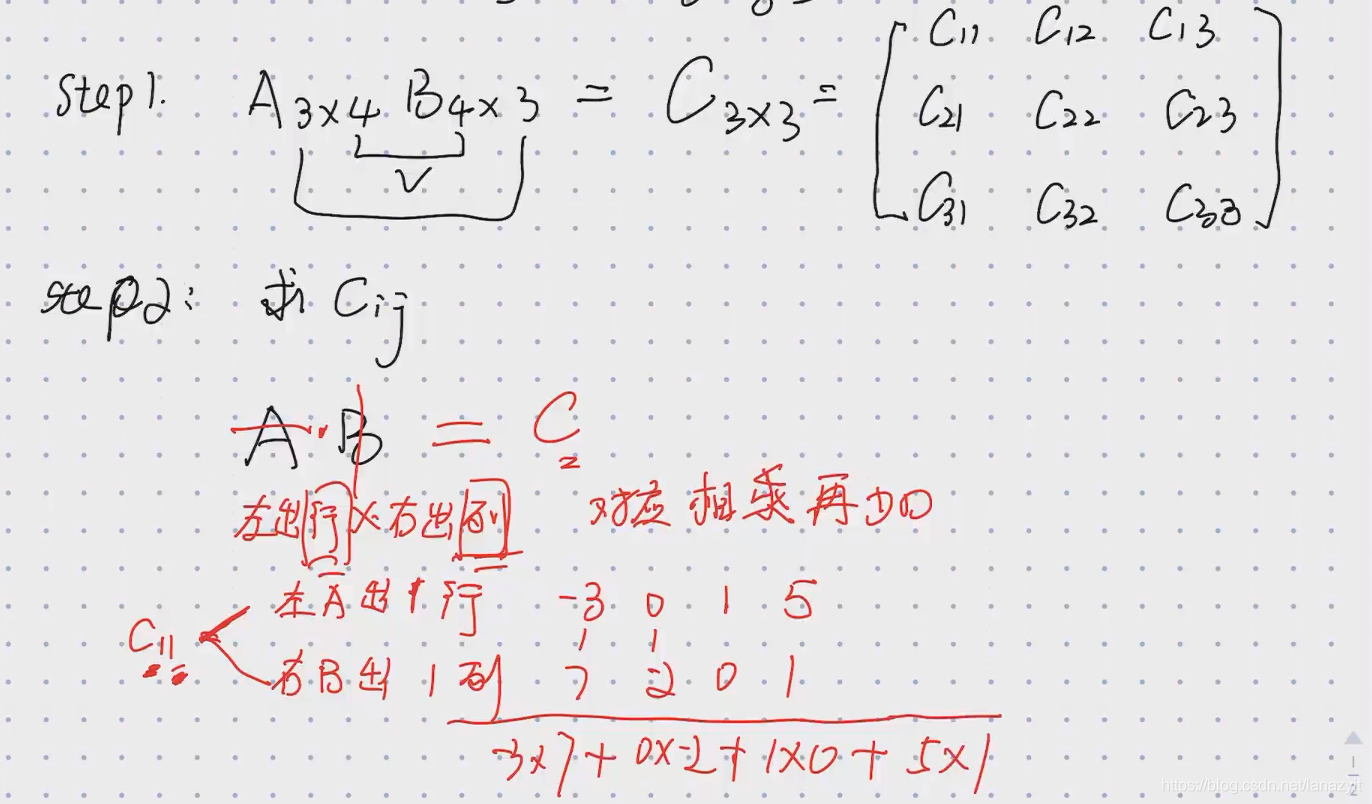 Step1. A3×4 B4×3 = C3×3 = [C11 C12 C13
C21 C22 C23
C31 C32 C33]
√
step2: 求 Cij
A·B = C
左出行×右出列 对应相乘再加
C11 左A出1行 -3 0 1 5
右B出1列 7 -2 0 1
-3×7+0×-2+1×0+5×1
1
2
https://blog.csdn.net/lanazyit